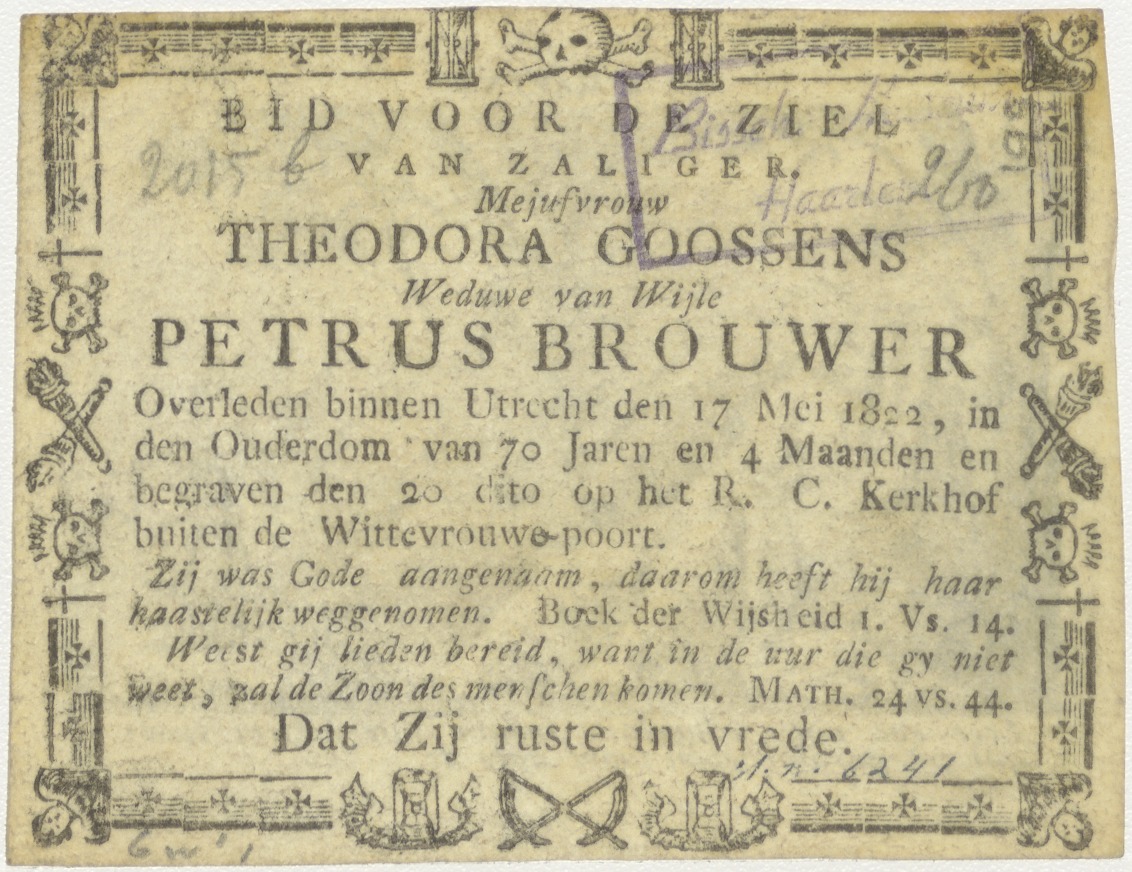 BID VOOR DE ZIEL
VAN ZALIGER.
2015 b
Haarle
260
Mejufvrouw
THEODORA GOOSSENS
Weduwe van Wijle
PETRUS BROUWER
Overleden binnen Utrecht den 17 Mei 1822, in
den Ouderdom van 70 Jaren en 4 Maanden en
begraven den 20 dito op het R. C. Kerkhof
buiten de Wittevrouwe-poort.
Zij was Gode aangenaam, daarom heeft hij haar
haastelijk weggenomen. Boek der Wijsheid 1. Vs. 14.
Weest gij lieden bereid, want in de uur die gy niet
weet, zal de Zoon des menschen komen. MATH. 24 vs. 44.
Dat Zij ruste in vrede.
6241